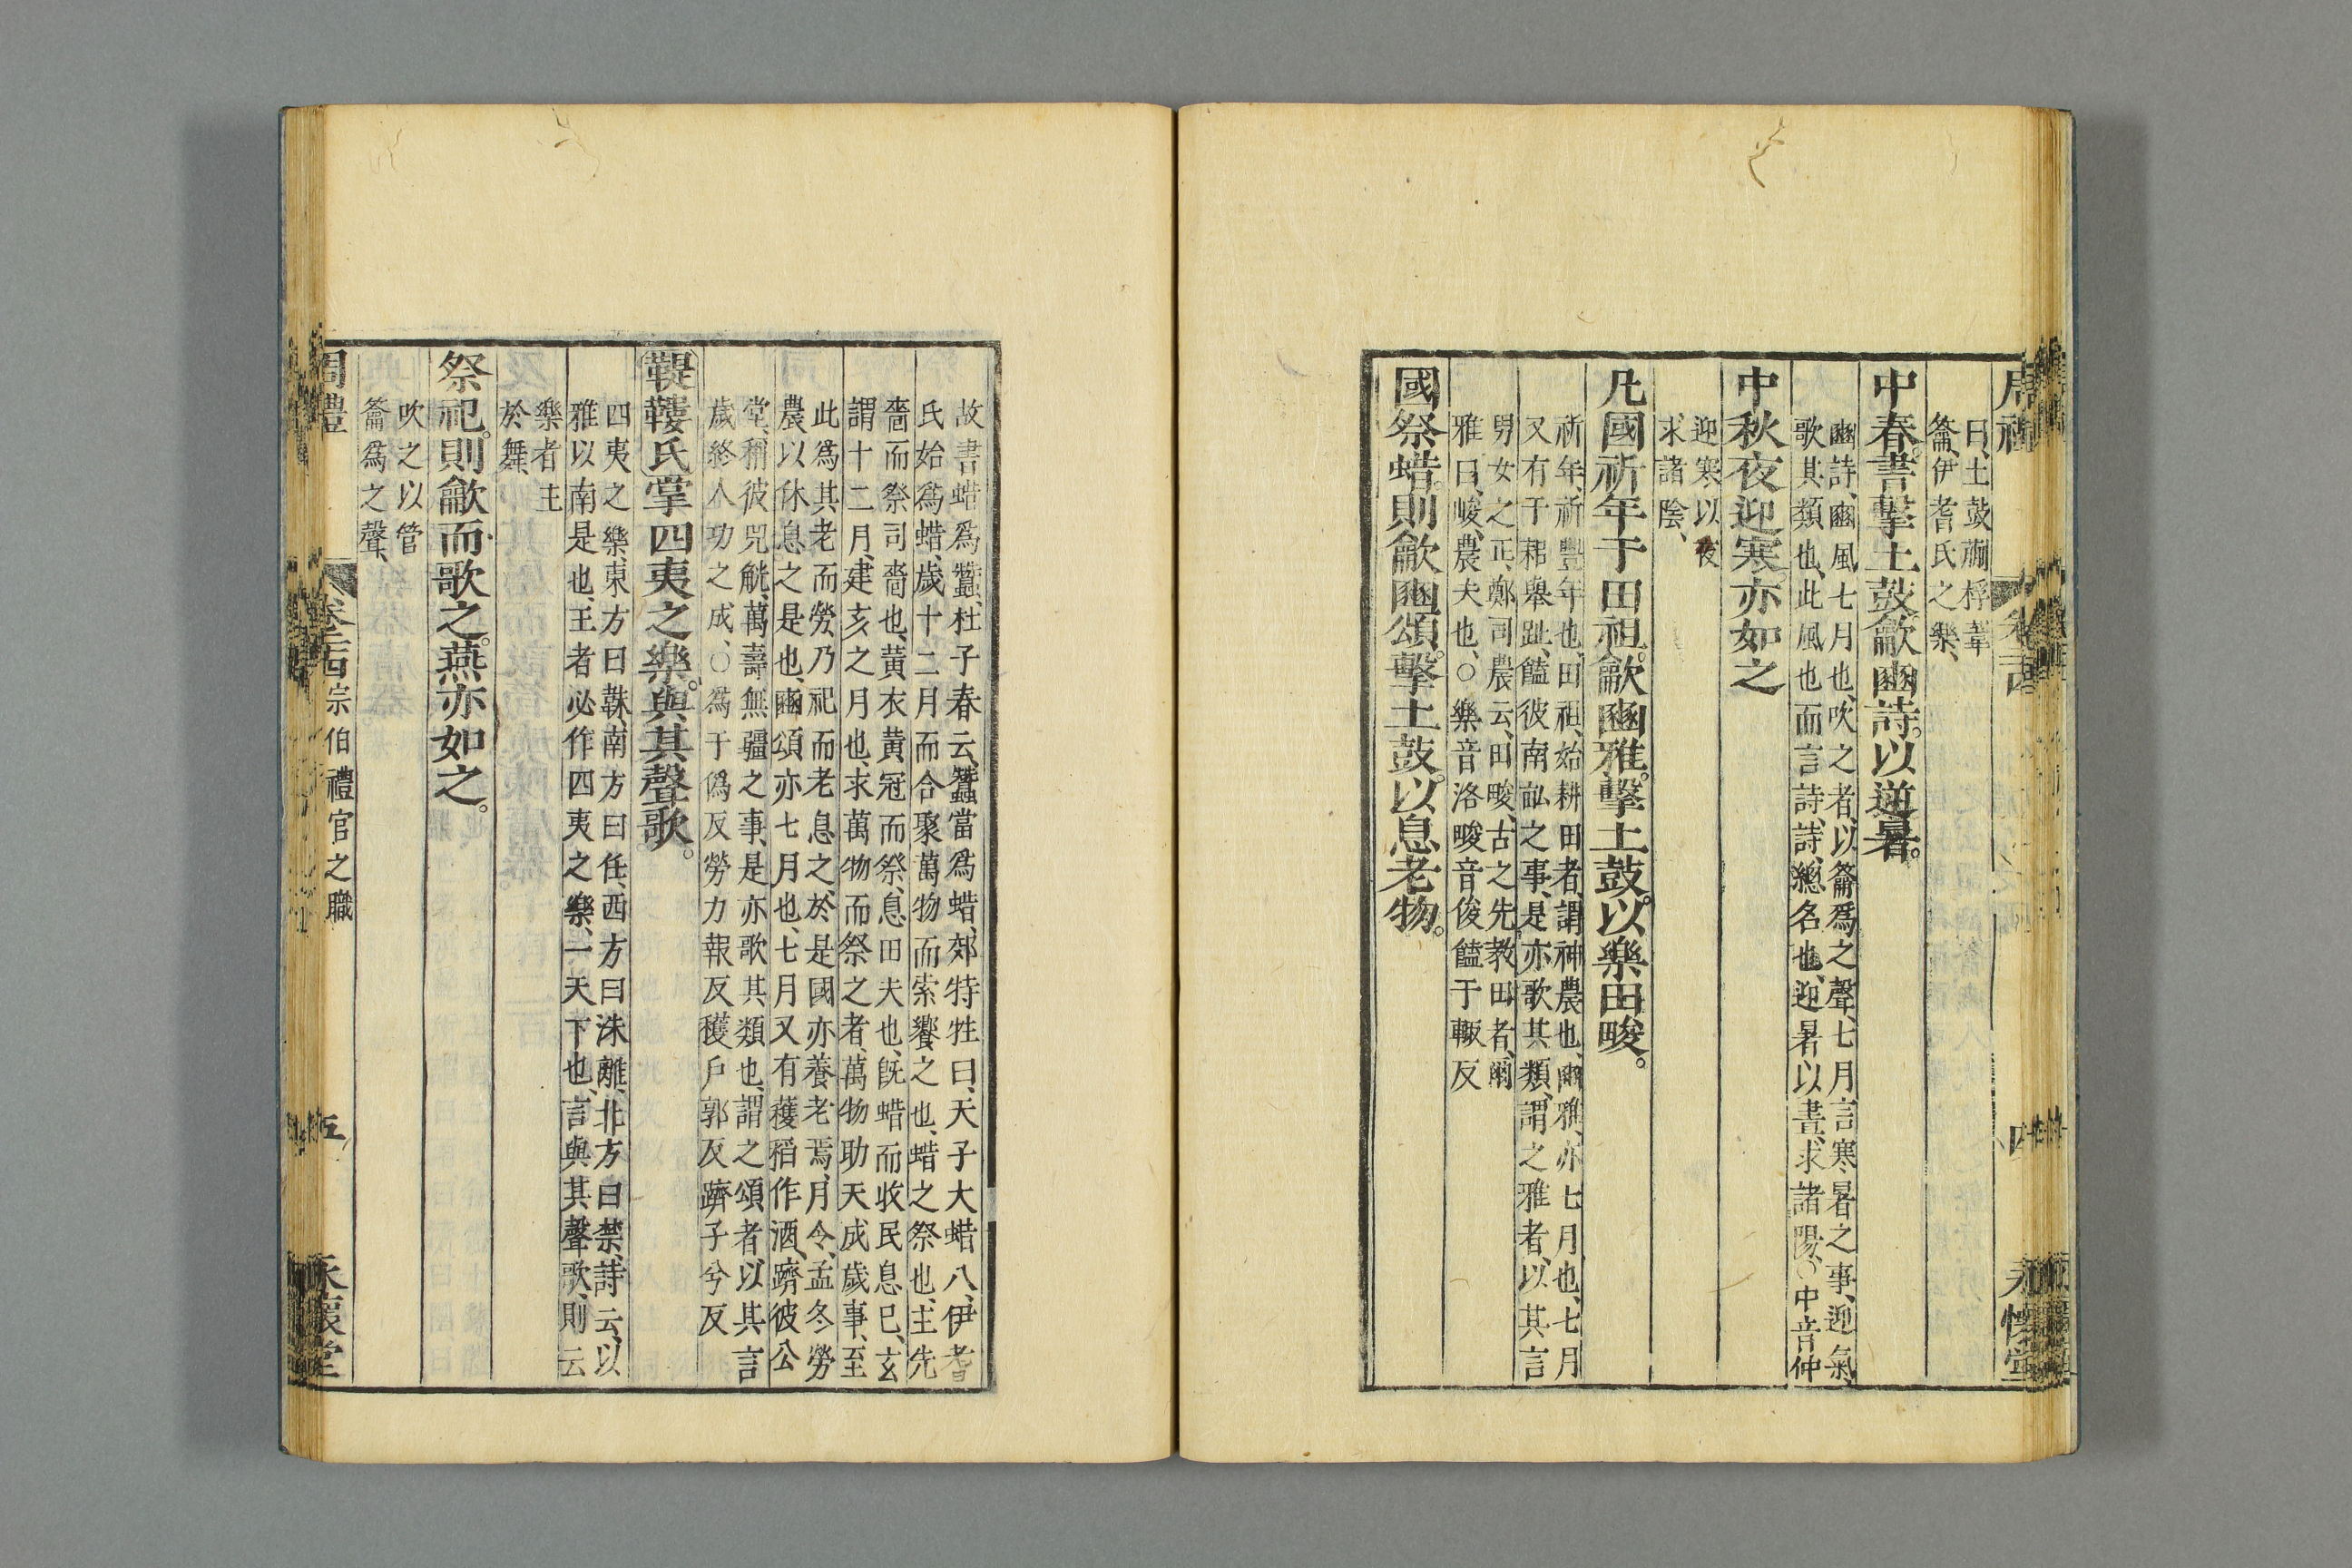 曰、土鼓、籥桴、葦
籥、伊耆氏之樂、
中春。晝擊土鼓。龡豳詩。以逆暑。
豳詩、豳風七月也、吹之者、以籥爲之聲、七月言寒暑之事、迎氣、
歌其類也、此風也而言詩、詩、總名也、迎暑以晝、求諸陽、○中音仲
中秋夜迎寒。亦如之
迎寒以夜
求諸陰、
凡國祈年于田祖。龡豳雅。擊土鼓。以樂田畯。
祈年、祈豐年也、田祖、始耕田者、謂神農也、豳雅、亦七月也、七月
又有于耜舉趾、饁彼南畝之事、是亦歌其類、謂之雅者、以其言
男女之正、鄭司農云、田畯、古之先教田者、爾
雅曰、畯、農夫也、○樂音洛畯音俊饁于輒反
國祭蜡。則龡豳頌。擊土鼓。以息老物。
故書蜡爲蠶、杜子春云、蠶當爲蜡、郊特牲曰、天子大蜡八、伊耆
氏始爲蜡、歲十二月而合聚萬物而索饗之也、蜡之祭也、主先
嗇而祭司嗇也、黃衣黃冠而祭、息田夫也、既蜡而收民息已、玄
謂十二月、建亥之月也、求萬物而祭之者、萬物助天成歲事、至
此爲其老而勞、乃祀而老息之、於是國亦養老焉、月令、孟冬勞
農以休息之是也、豳頌亦七月也、七月又有穫稻作酒、躋彼公
堂、稱彼兕觥、萬壽無疆之事、是亦歌其類也、謂之頌者、以其言
歲終人功之成、○爲于僞反勞力報反穫戶郭反躋子兮反
鞮鞻氏掌四夷之樂。與其聲歌。
四夷之樂、東方曰韎、南方曰任、西方曰洙離、北方曰禁、詩云、以
雅以南是也、王者必作四夷之樂、一天下也、言與其聲歌、則云
樂者主
於舞、
祭祀。則龡而歌之。燕亦如之。
吹之以管
籥爲之聲、
周禮 卷二十四 宗伯禮官之職 五 永懷堂